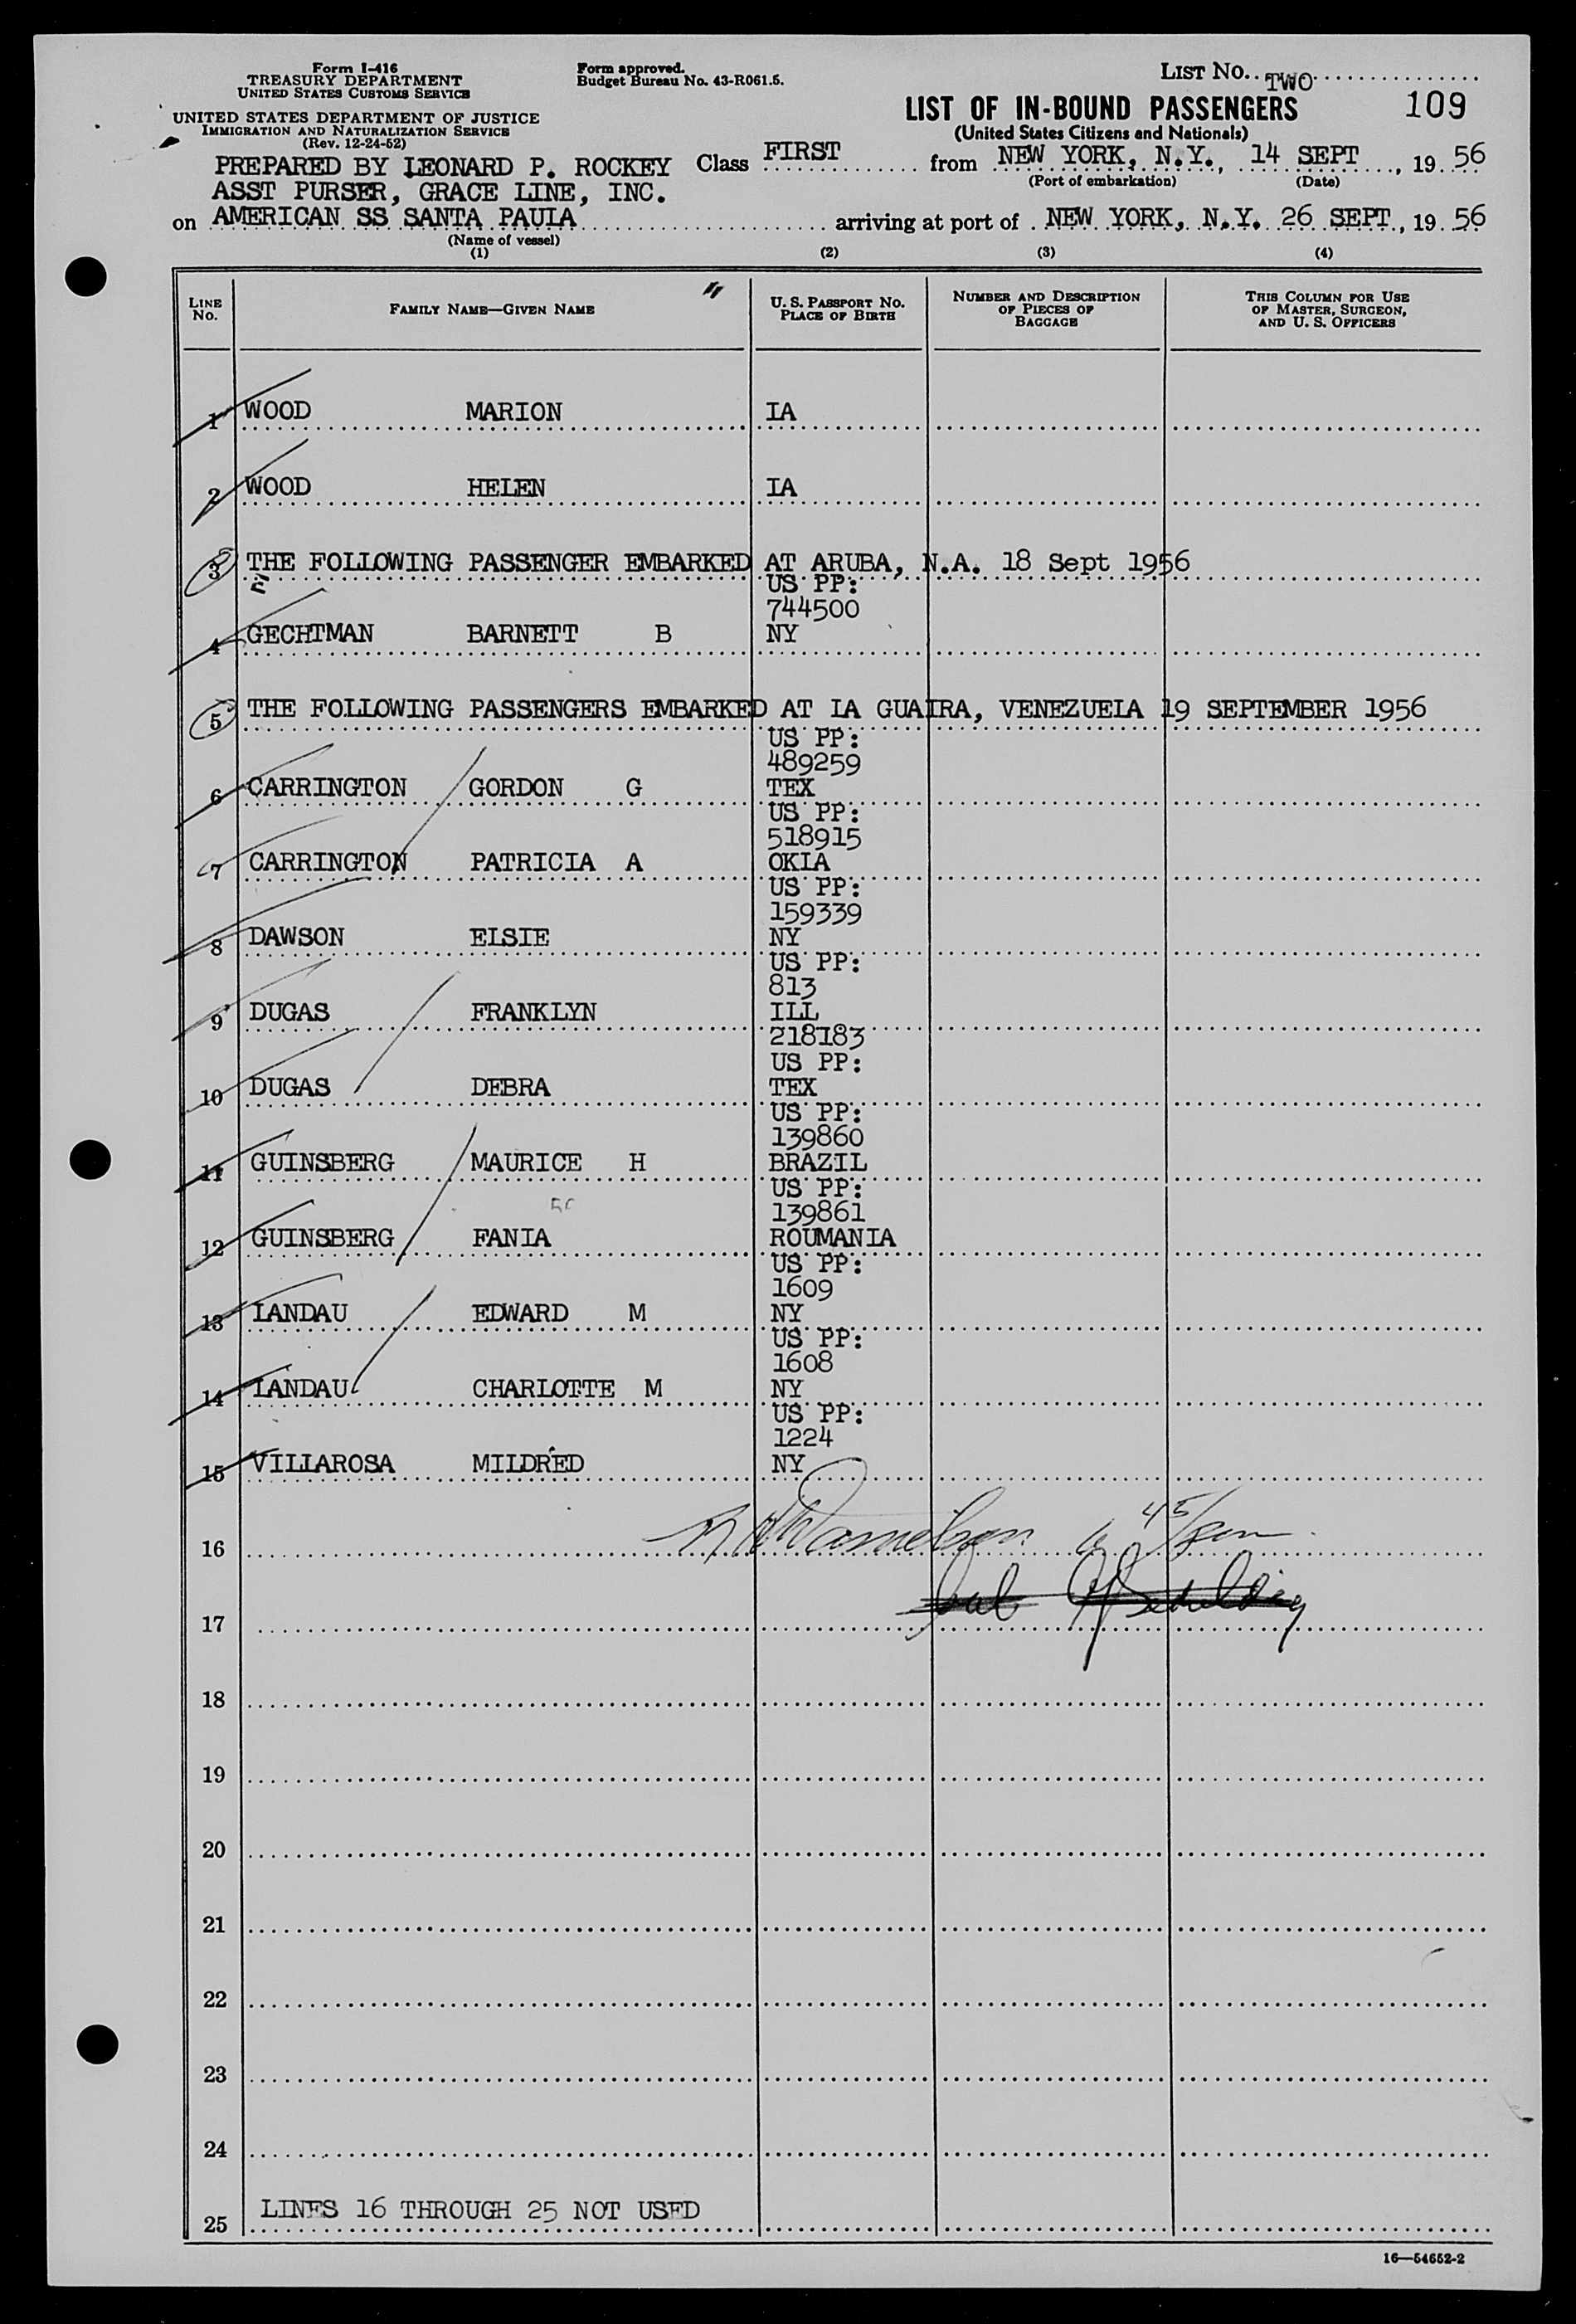 Form I-416
TREASURY DEPARTMENT
UNITED STATES CUSTOMS SERVICE
Form approved.
Budget Bureau No. 43-R061.5.
LIST No. TWO
UNITED STATES DEPARTMENT OF JUSTICE
IMMIGRATION AND NATURALIZATION SERVICE
(Rev. 12-24-52)
LIST OF IN-BOUND PASSENGERS 109
(United States Citizens and Nationals)
PREPARED BY LEONARD P. ROCKEY Class FIRST from NEW YORK, N.Y., 14 SEPT, 19 56
(Port of embarkation) (Date)
ASST PURSER, GRACE LINE, INC.
on AMERICAN SS SANTA PAULA arriving at port of NEW YORK, N.Y. 26 SEPT, 19 56
(Name of vessel)
(1) (2) (3) (4)
LINE No. FAMILY NAME—GIVEN NAME U. S. PASSPORT NO. PLACE OF BIRTH NUMBER AND DESCRIPTION OF PIECES OF BAGGAGE THIS COLUMN FOR USE OF MASTER, SURGEON, AND U. S. OFFICERS
1 WOOD MARION IA
2 WOOD HELEN IA
3 THE FOLLOWING PASSENGER EMBARKED AT ARUBA, N.A. 18 Sept 1956
US PP:
744500
4 GECHTMAN BARNETT B NY
5 THE FOLLOWING PASSENGERS EMBARKED AT LA GUAIRA, VENEZUELA 19 SEPTEMBER 1956
US PP:
489259
6 CARRINGTON GORDON G TEX
US PP:
518915
7 CARRINGTON PATRICIA A OKLA
US PP:
159339
8 DAWSON ELSIE NY
US PP:
813
9 DUGAS FRANKLYN ILL
218183
US PP:
10 DUGAS DEBRA TEX
US PP:
139860
11 GUINSBERG MAURICE H BRAZIL
US PP:
139861
12 GUINSBERG FANIA ROUMANIA
US PP:
1609
13 LANDAU EDWARD M NY
US PP:
1608
14 LANDAU CHARLOTTE M NY
US PP:
1224
15 VILLAROSA MILDRED NY
16
17
18
19
20
21
22
23
24
25 LINES 16 THROUGH 25 NOT USED
16—54652-2